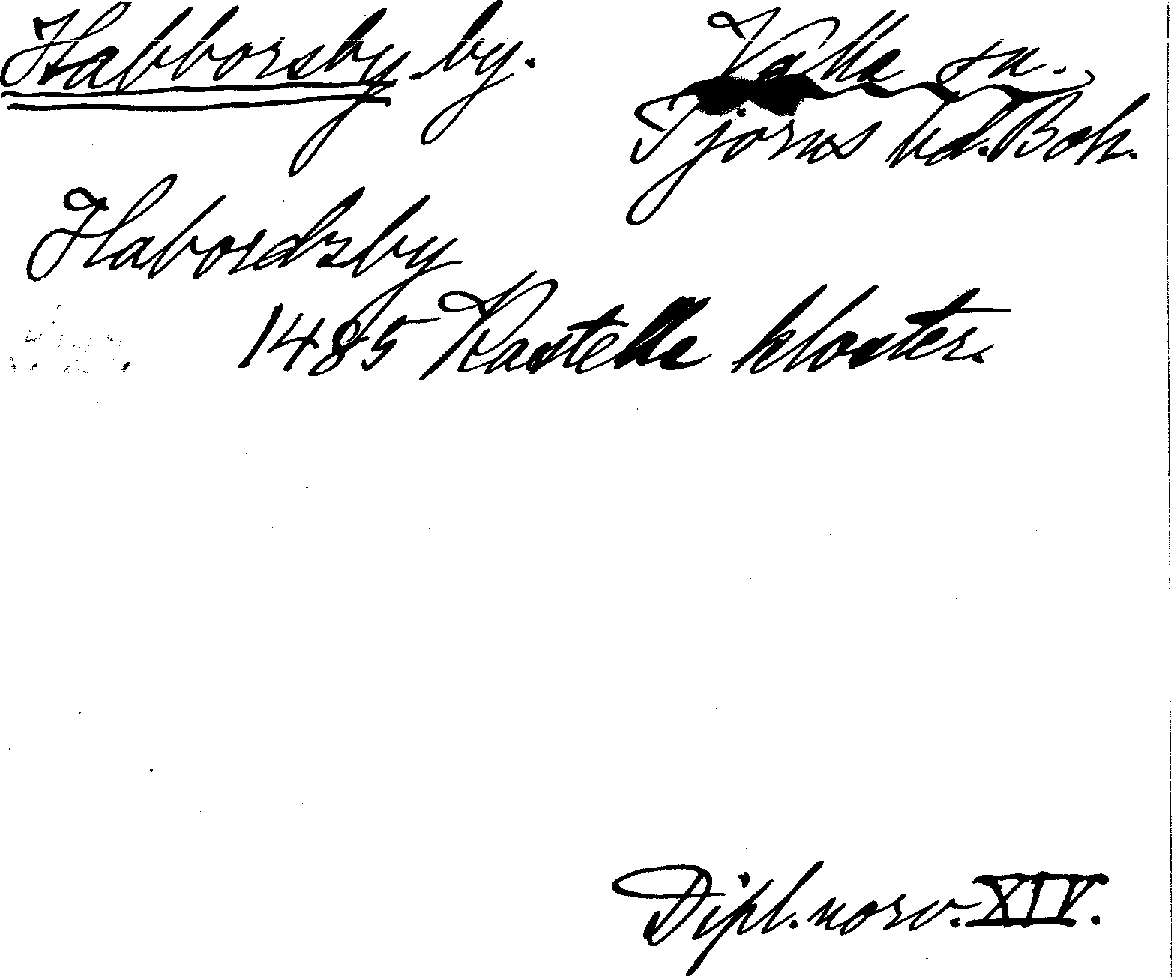 Habborsby by. Valla sn.
Tjörns hd. Boh.
Habordsby
1485 Kastelle kloster.
Dipl. norv. XIV.